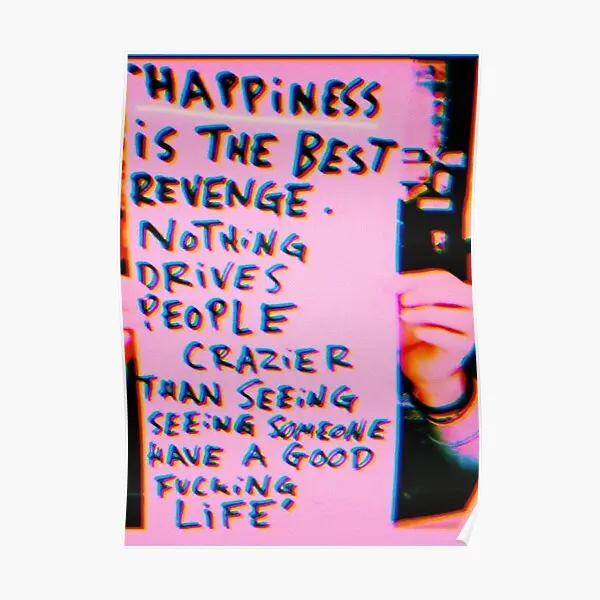 "HAPPiNESS
iS THE BEST
REVENGE.
NOTHiNG
DRiVES
PEOPLE
CRAZiER
THAN SEEiNG
SEEiNG SOMEONE
HAVE A GOOD
FUCKiNG
LiFE"